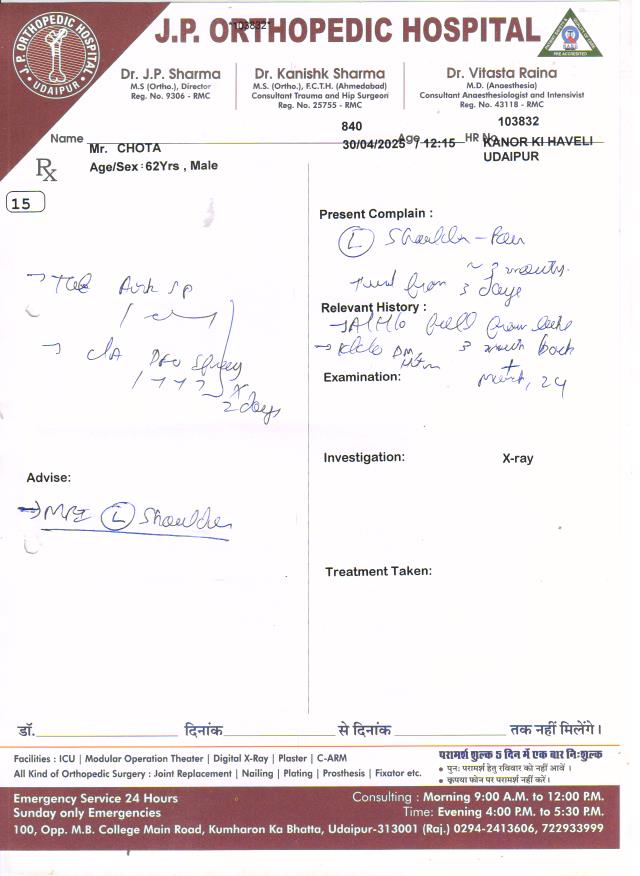 J.P. ORTHOPEDIC HOSPITAL
1038321
J.P. ORTHOPEDIC HOSPITAL
UDAIPUR
Dr. J.P. Sharma
M.S (Ortho.), Director
Reg. No. 9306 - RMC
Dr. Kanishk Sharma
M.S. (Ortho.), F.C.T.H. (Ahmedabad)
Consultant Trauma and Hip Surgeon
Reg. No. 25755 - RMC
Dr. Vitasta Raina
M.D. (Anaesthesia)
Consultant Anaesthesiologist and Intensivist
Reg. No. 43118 - RMC
840
103832
Name Mr. CHOTA
Age
30/04/2025 / 12:15
HR No.
KANOR KI HAVELI
UDAIPUR
Rx
Age/Sex : 62Yrs , Male
15
Present Complain :
(L) Shoulder - Pain
~ 3 months.
from 3 days
Relevant History :
fell from
DM 3 month back
Examination:
March, 24
SP
Spray
x
2 days
Investigation:
X-ray
Advise:
→ MRI (L) Shoulder
Treatment Taken:
डॉ. दिनांक से दिनांक तक नहीं मिलेंगे।
Facilities : ICU | Modular Operation Theater | Digital X-Ray | Plaster | C-ARM
All Kind of Orthopedic Surgery : Joint Replacement | Nailing | Plating | Prosthesis | Fixator etc.
परामर्श शुल्क 5 दिन में एक बार निःशुल्क
• पुनः परामर्श हेतु रविवार को नहीं आवें ।
• कृपया फोन पर परामर्श नहीं करें।
Emergency Service 24 Hours
Sunday only Emergencies
Consulting : Morning 9:00 A.M. to 12:00 P.M.
Time: Evening 4:00 P.M. to 5:30 P.M.
100, Opp. M.B. College Main Road, Kumharon Ka Bhatta, Udaipur-313001 (Raj.) 0294-2413606, 722933999